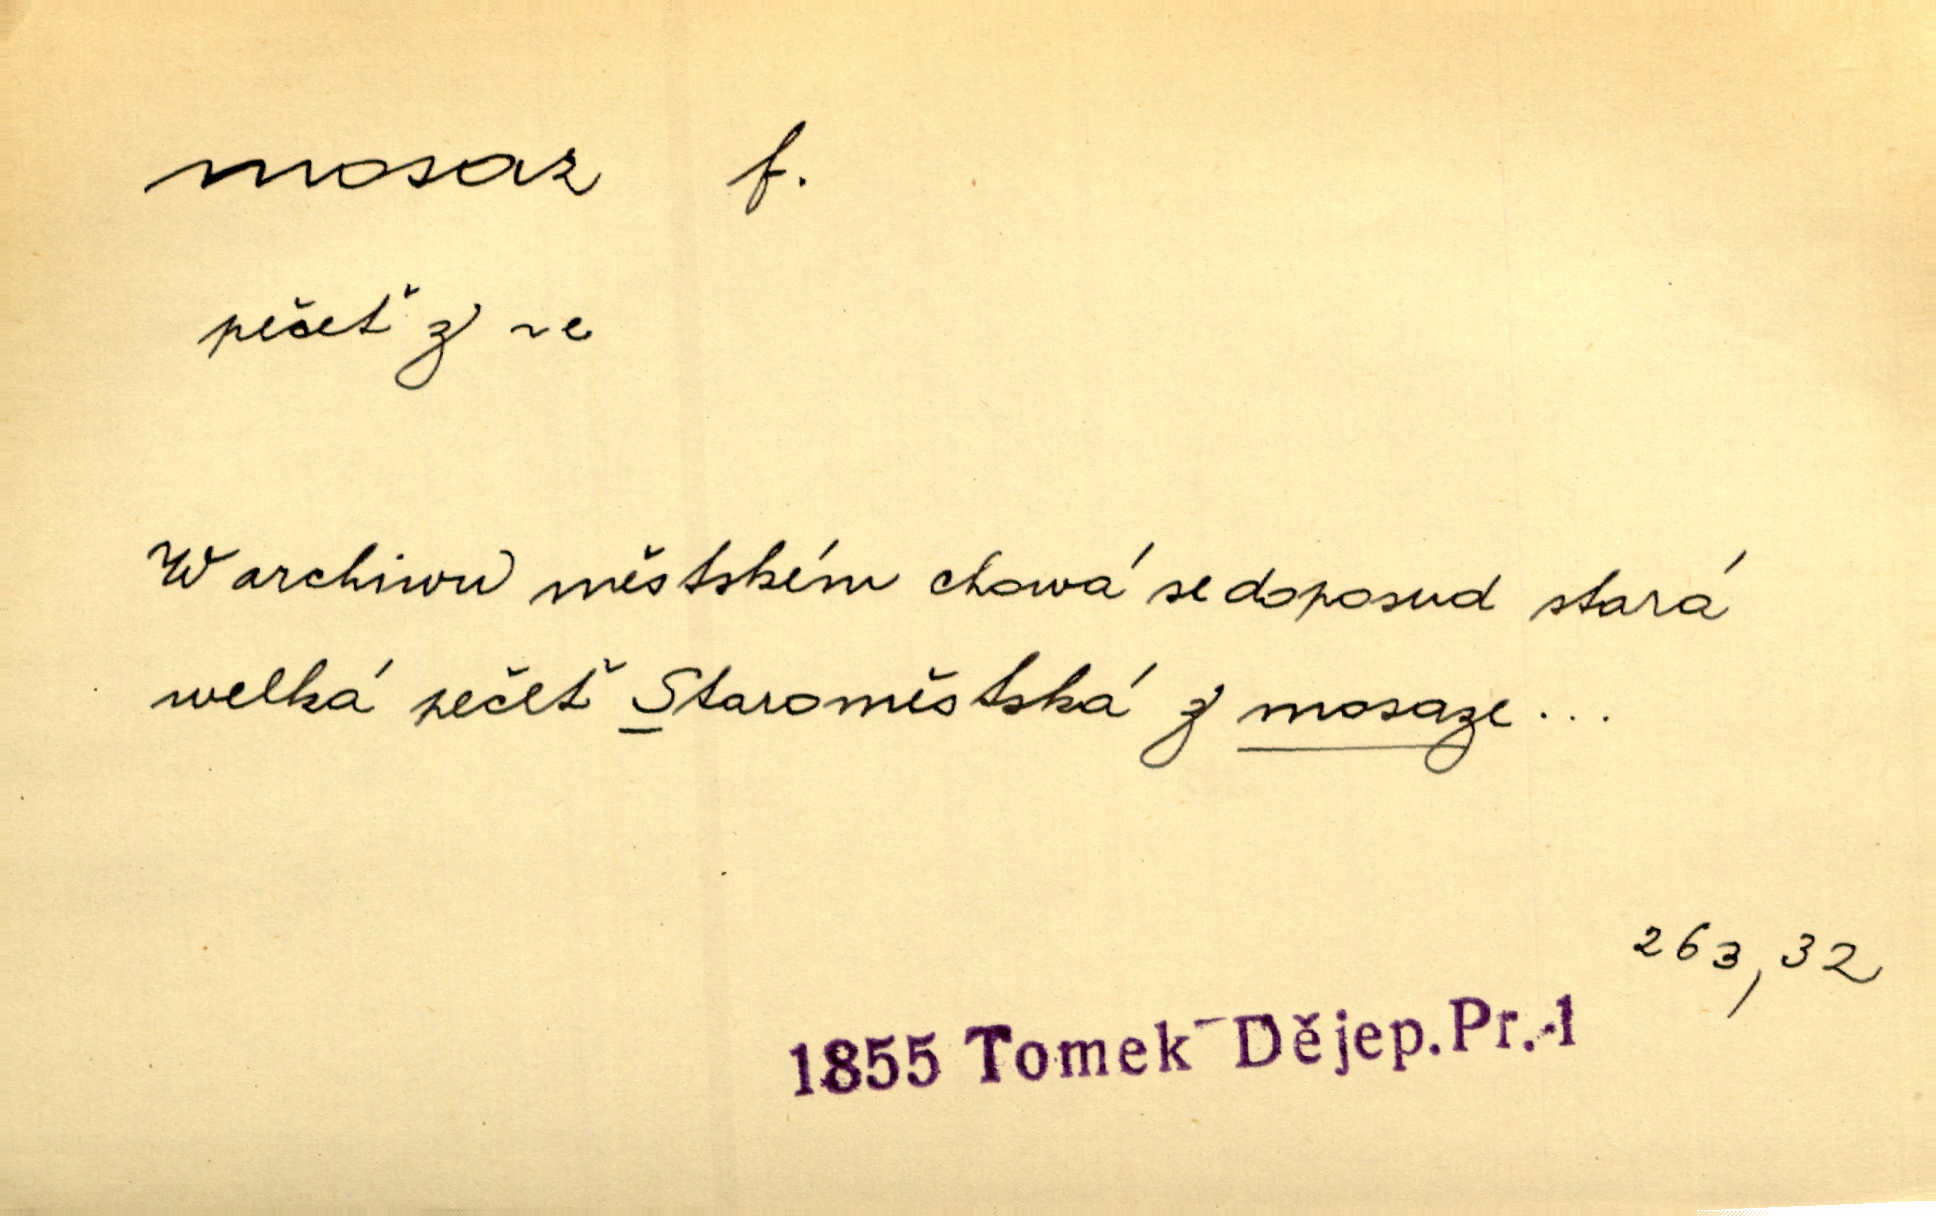 mosaz f.
pečeť z ~e
W archiwu městském chowá se doposud stará
welká pečeť Staroměstská z mosaze...
263,32
1855 Tomek-Dějep. Pr.-1